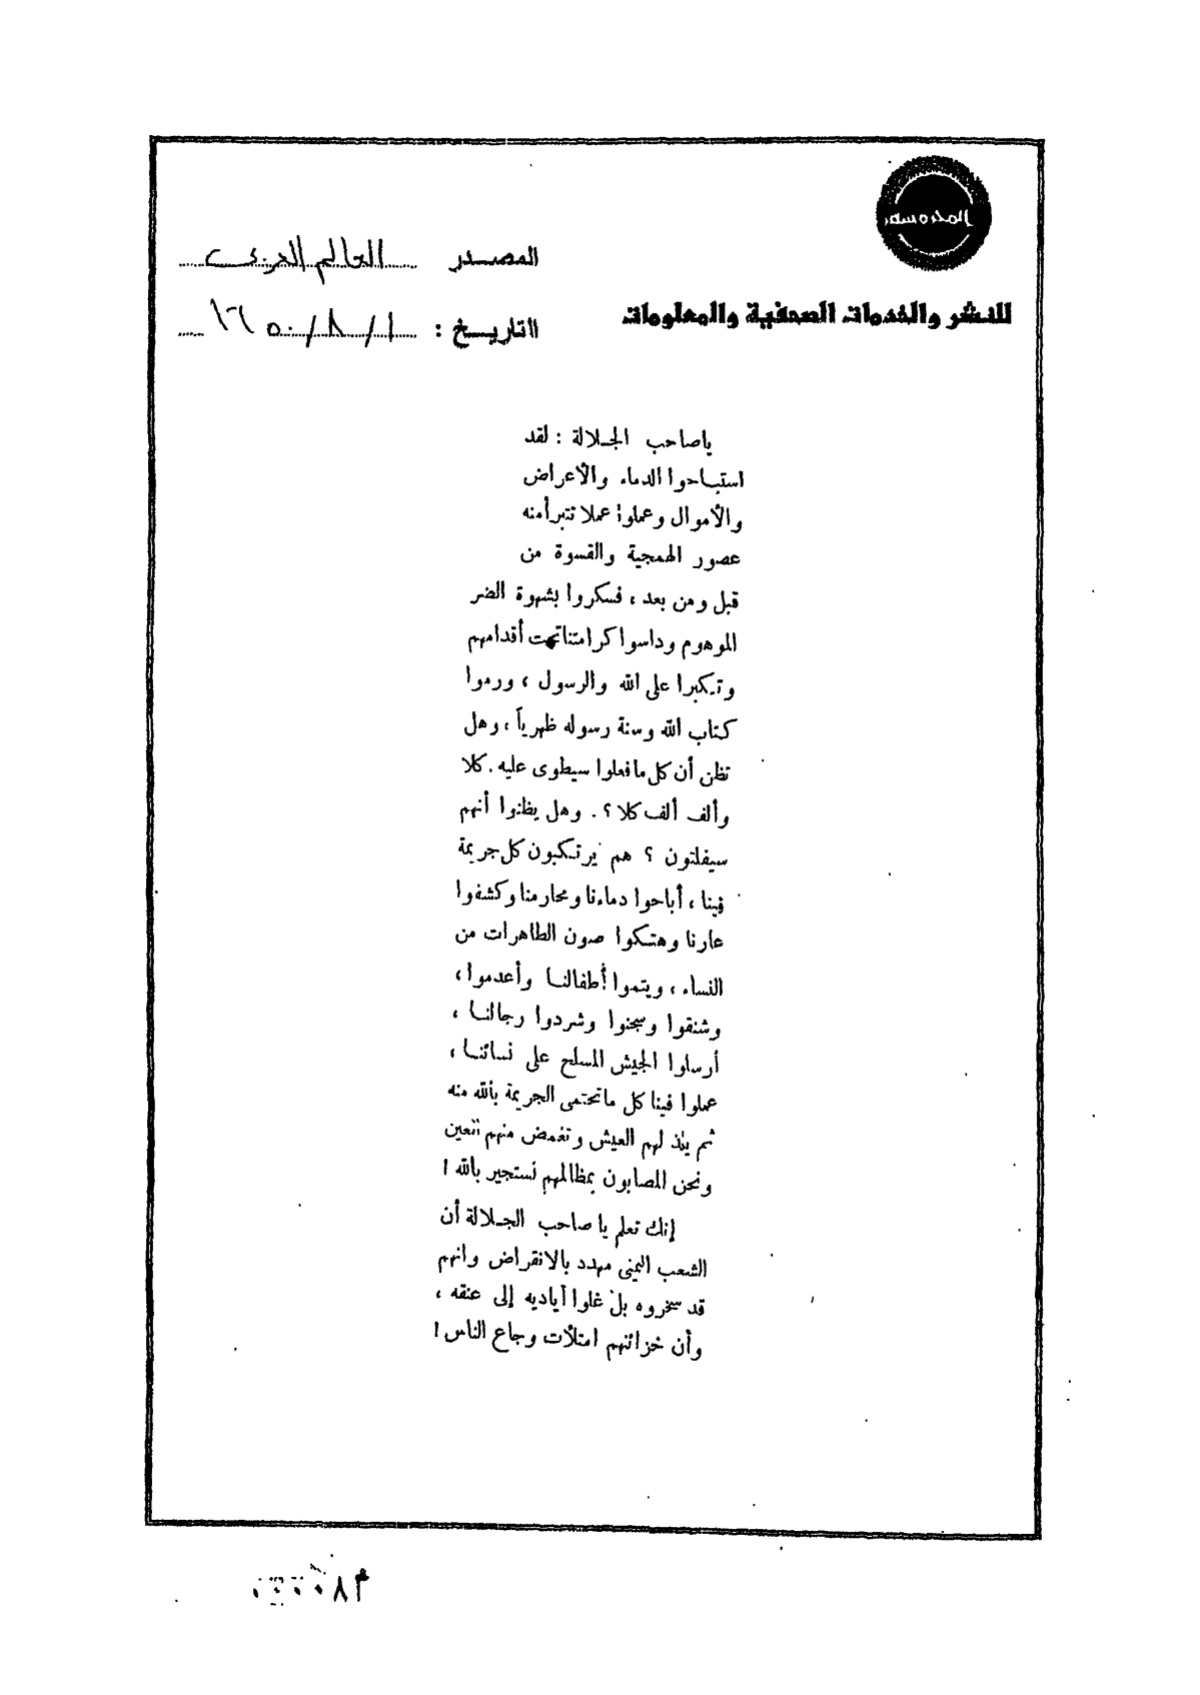 المحروسة
المصدر العالم العربى
للنشر والخدمات الصحفية والمعلومات
التاريخ :
ياصاحب الجلالة : لقد
استباحوا الدماء والأعراض
والأموال وعملوا عملا تتبرأمنه
عصور الهمجية والقسوة من
قبل ومن بعد ، فسكروا بشهوة الضر
الموهوم وداسوا كرامتناتحت أقدامهم
وتكبرا على الله والرسول ، ورموا
كتاب الله وسنة رسوله ظهرياً ، وهل
تظن أن كل مافعلوا سيطوى عليه . كلا
وألف ألف كلا ؟ . وهل يظنوا أنهم
سيفلتون ؟ هم يرتكبون كل جريمة
فينا ، أباحوا دماءنا ومحارمنا وكشفوا
عارنا وهتكوا صون الطاهرات من
النساء ، ويتموا أطفالنا وأعدموا ،
وشنقوا وسجنوا وشردوا رجالنا ،
أرسلوا الجيش المسلح على نسائنا ،
عملوا فينا كل ماتحتمى الجريمة بالله منه
ثم يلذ لهم العيش وتغمض منهم العين
ونحن المصابون بمظالمهم نستجير بالله !
إنك تعلم يا صاحب الجلالة أن
الشعب اليمنى مهدد بالانقراض وانهم
قد سخروه بل غلوا أياديه إلى عنقه ،
وأن خزائنهم امتلأت وجاع الناس !